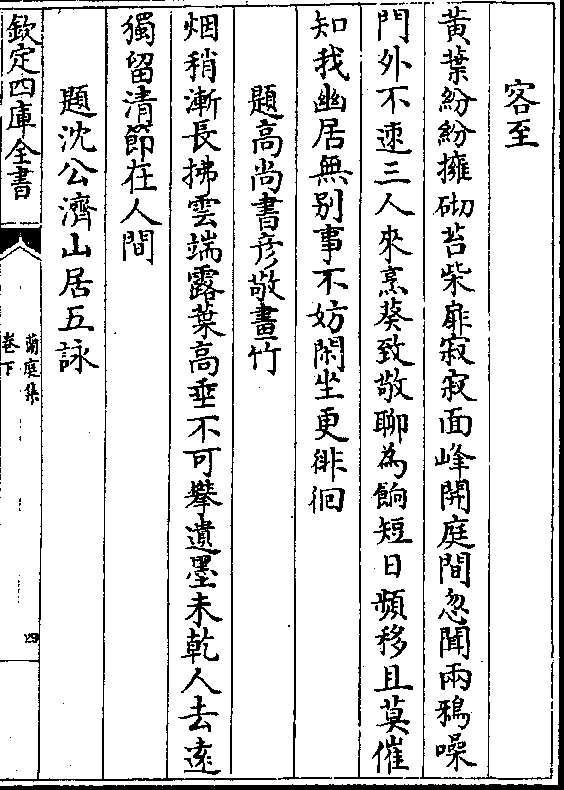 客至
黃葉紛紛擁砌苔柴扉寂寂面峰開庭間忽聞兩鴉噪
門外不速三人來烹葵致敬聊為餉短日頻移且莫催
知我幽居無别事不妨閑坐更徘徊
題高尚書彦敬畫竹
烟稍漸長拂雲端露葉高垂不可攀遺墨未乾人去逺
獨留清節在人間
題沈公濟山居五詠
欽定四庫全書
蘭庭集
卷下